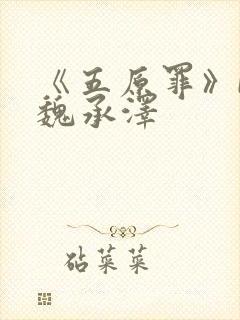 《五原罪》
魏承澤
砧菜菜